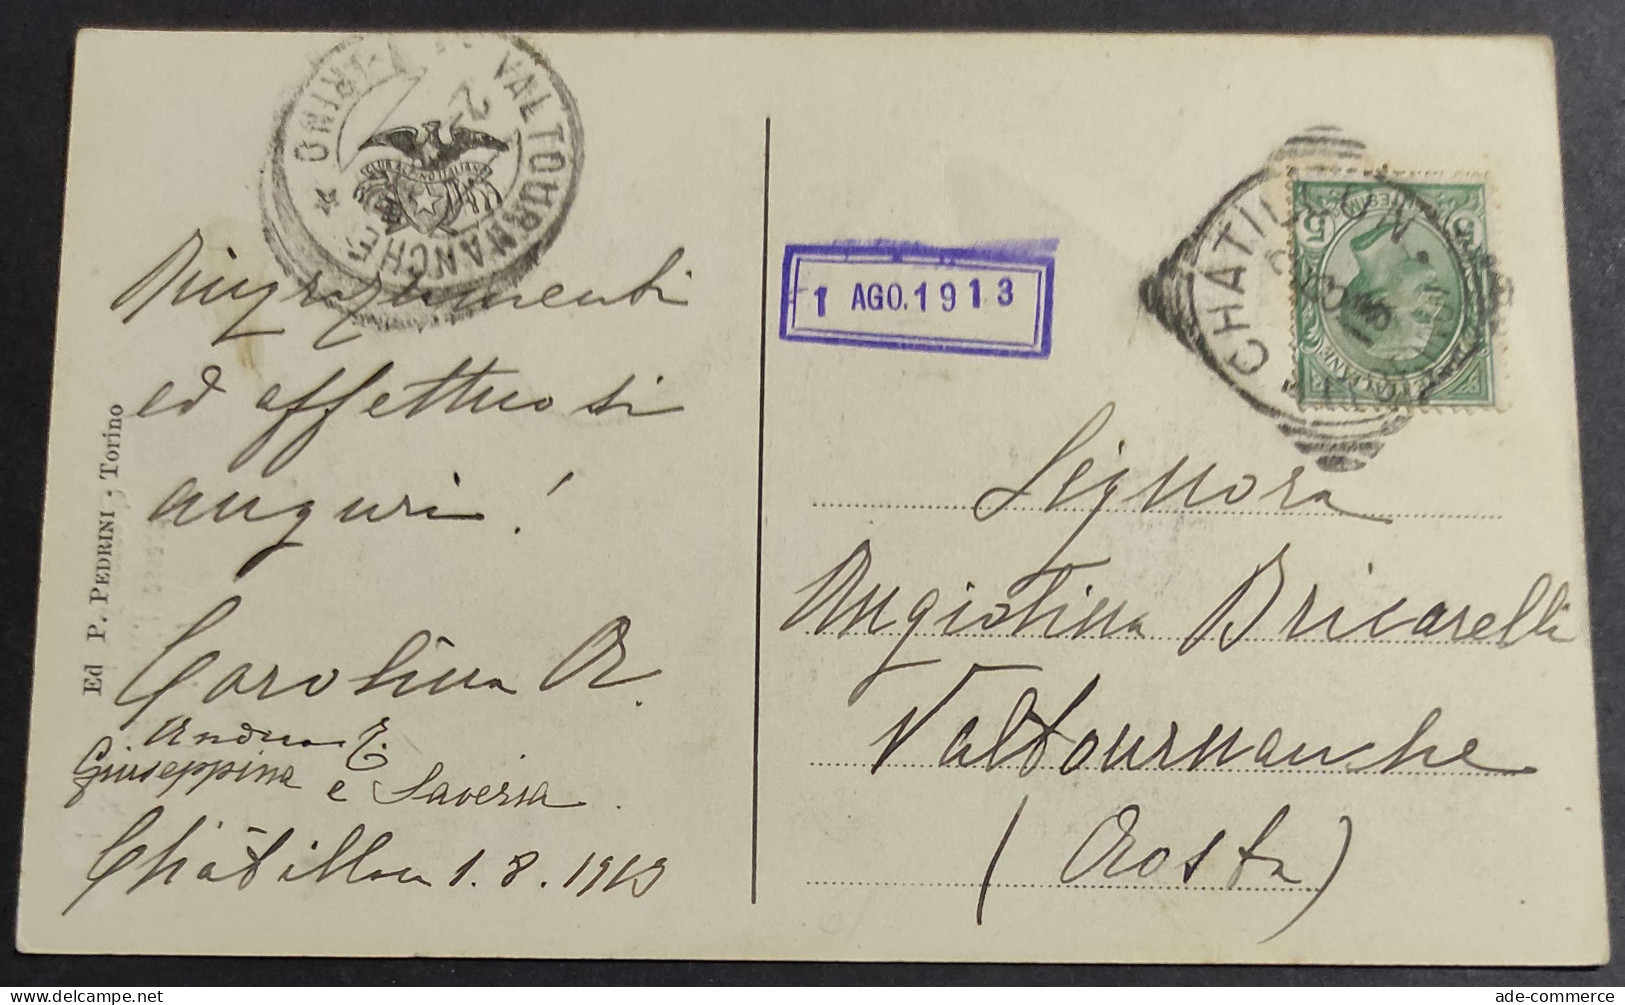 VALTOURNANCHE
TORINO
CLUB ALPINO ITALIANO
Ringraziamenti
ed affettuosi
auguri!
Carolina R.
Andrea E.
Giuseppina e Saveria.
Châtillon 1.8.1913
Ed P. PEDRINI - Torino
1 AGO. 1913
CHATILLON
5
5
Signora
Angiolina Bricarelli
Valtournanche
(Aosta)
ade-commerce